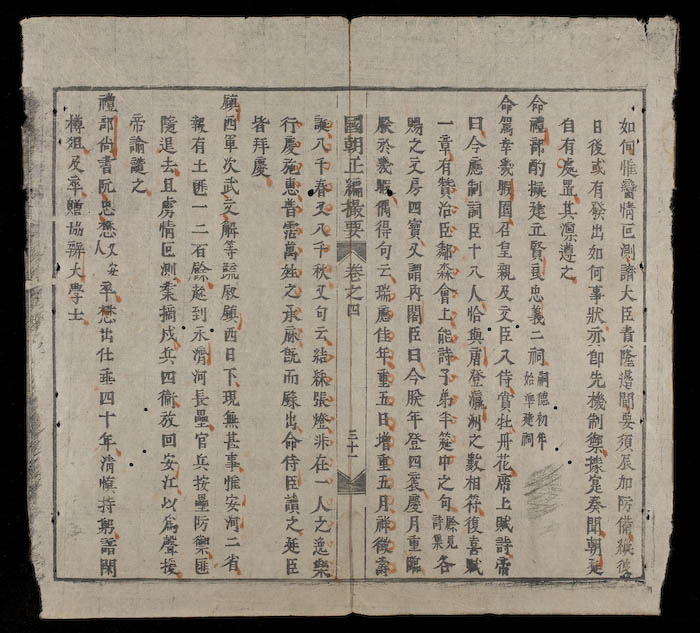 如何惟蠻情叵測諸大臣責隆邊閫要須辰加防備縱後
日後或有發出如何事狀亦即先機制禦據寔奏聞朝廷
自有處置其凛遵之
命禮部酌擬建立賢良忠義二祠嗣德初年始準建祠
命駕幸幾暇園召皇親及文臣入侍賞牡丹花席上賦詩帝
曰今應制詞臣十八人恰與唐登瀛洲之數相符復喜賦
一章有贊治臣鄰森會上能詩子弟半筵中之句餘見詩集各
賜之文房四寶又謂內閣臣曰今朕年登四袠慶月重臨
朕於幾暇偶得句云瑞應佳年重五日增重五月祥徵壽
國朝正編撮要 卷之四 三十一
誕八千春又八千秋又句云結綵張燈非在一人之逸樂
行慶施惠普霑萬姓之承庥旣而錄出命侍臣讀之廷臣
皆拜慶
鎮西軍次武文解等疏敘鎮西日下現無甚事惟安河二省
報有土匪一二石餘趂到永濟河長壘官兵按壘防禦匪
隨退去且虜情叵測業摘戍兵四衛放回安江以爲聲援
帝諭讓之
禮部尚書阮忠懋卒懋乂安人出仕垂四十年清慎持躬諳閑
樽俎及卒贈協辦大學士